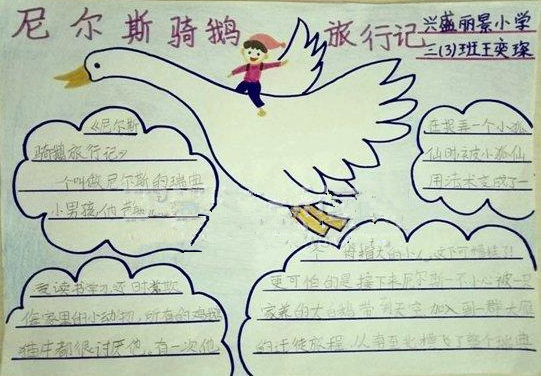 尼尔斯骑鹅旅行记
兴盛丽景小学
三(3)班王奕琛
《尼尔斯
骑鹅旅行记》
一个叫做尼尔斯的瑞典
小男孩,他
爱读书学习,还时常欺
家里的小动物,所有的鸡鹅
猫牛都很讨厌他,有一次他
在捉弄一个小狐
仙时被小狐仙
用法术变成了一
个拇指大的小人,这下可
更可怕的是接下来尼尔斯一不小心被一只
家养的大白鹅带到天空加入到一群大雁
的迁徙旅程,从南至北飞了整个瑞典